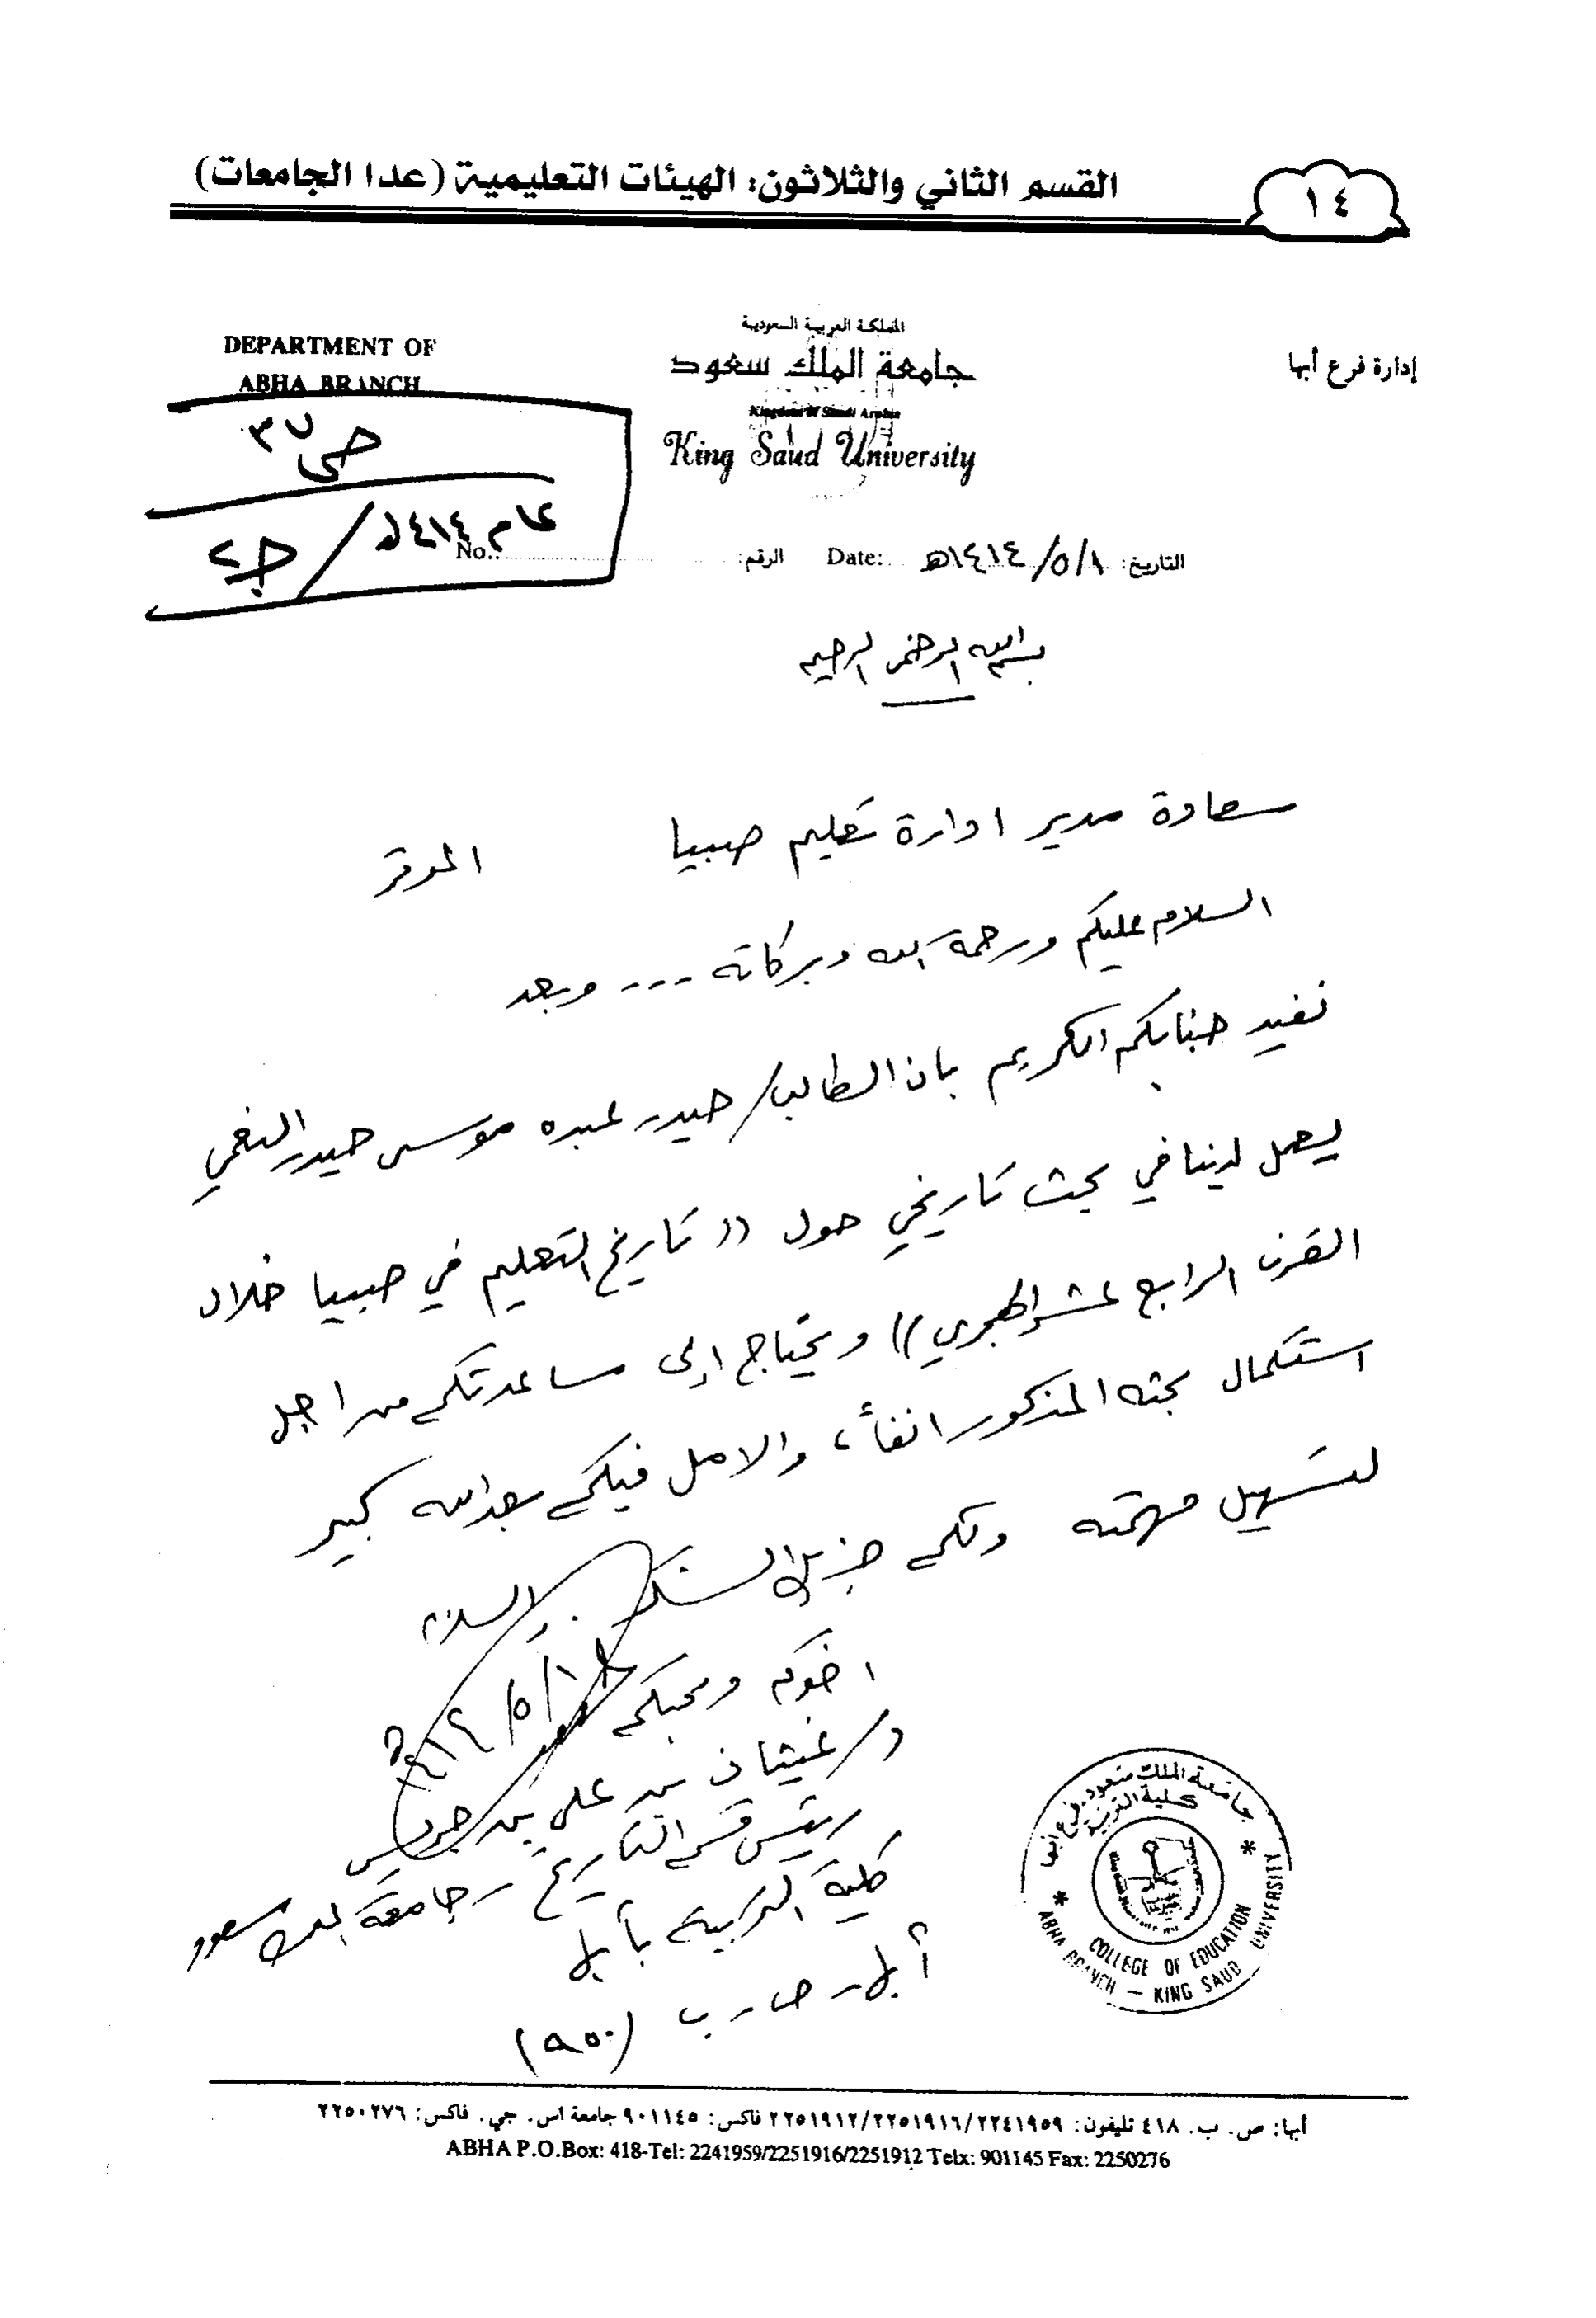 القسم الثاني والثلاثون: الهيئات التعليمية (عدا الجامعات)
١٤
إدارة فرع أبها
المملكة العربية السعودية
جامعة الملك سعود
Kingdom of Saudi Arabia
King Saud University
DEPARTMENT OF
ABHA BRANCH
ص ٣٧
عام ١٤١٤هـ / جـ٢
التاريخ: ١/٥/١٤١٤هـ Date: الرقم: No.:
بسم الله الرحمن الرحيم
سعادة مدير ادارة تعليم صبيا الموقر
السلام عليكم ورحمة الله وبركاته --- وبعد
نفيد جنابكم الكريم بان الطالب/ حيدر عبده موسى حيدر النعمي
يعمل لدينا في بحث تاريخي حول ((تاريخ التعليم في صبيا خلال
القرن الرابع عشر الهجري)) ويحتاج إلى مساعدتكم من اجل
استكمال بحثه المذكور انفاً، والامل فيكم بعد الله كبير
لتسهيل مهمته ولكم جزيل الشكر. والسلام
اخوكم ومحبكم
د/ غيثان بن علي بن جريس
رئيس قسم التاريخ - جامعة الملك سعود
كلية التربية بأبها
أبها - ص. ب (٩٥٠)
جامعة الملك سعود. فرع أبها
كلية التربية
COLLEGE OF EDUCATION
ABHA BRANCH – KING SAUD UNIVERSITY
أبها: ص. ب. ٤١٨ تليفون: ٢٢٥١٩١٢/٢٢٥١٩١٦/٢٢٤١٩٥٩ فاكس: ٩٠١١٤٥ جامعة اس. جي. فاكس: ٢٢٥٠٢٧٦
ABHA P.O.Box: 418-Tel: 2241959/2251916/2251912 Telx: 901145 Fax: 2250276